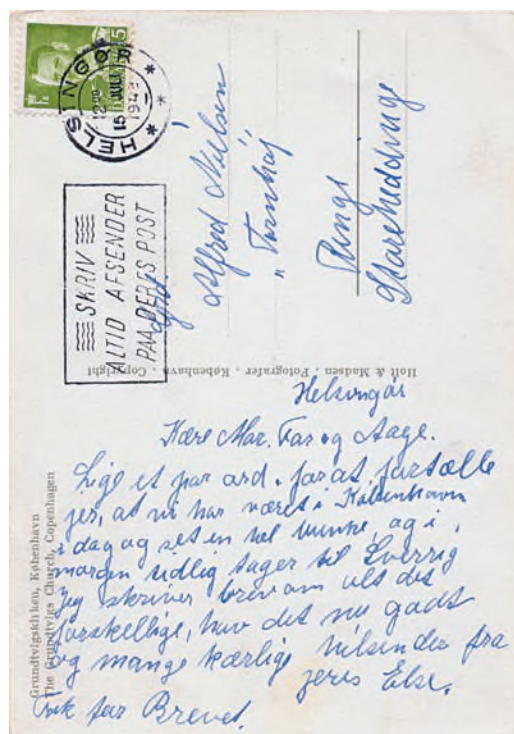 HELSINGØR
15 JULI
SKRIV
ALTID AFSENDER
PAA DERES POST
Alfred Nielsen
"
Ringe
Storeheddinge
Holt & Madsen . Fotografer . København . Copyright
Grundtvigskirken, København
The Grundtvigs Church, Copenhagen
Helsingør
Kære Mor. Far og Aage.
Lige et par ord . for at fortælle
jer, at vi har været i København
i dag og set en hel , og i
morgen tidlig tager til Sverrig
Jeg skriver brev om alt det
forskellige, hav det nu godt
og mange kærlige hilsender fra
jeres Else.
Tak for Brevet.